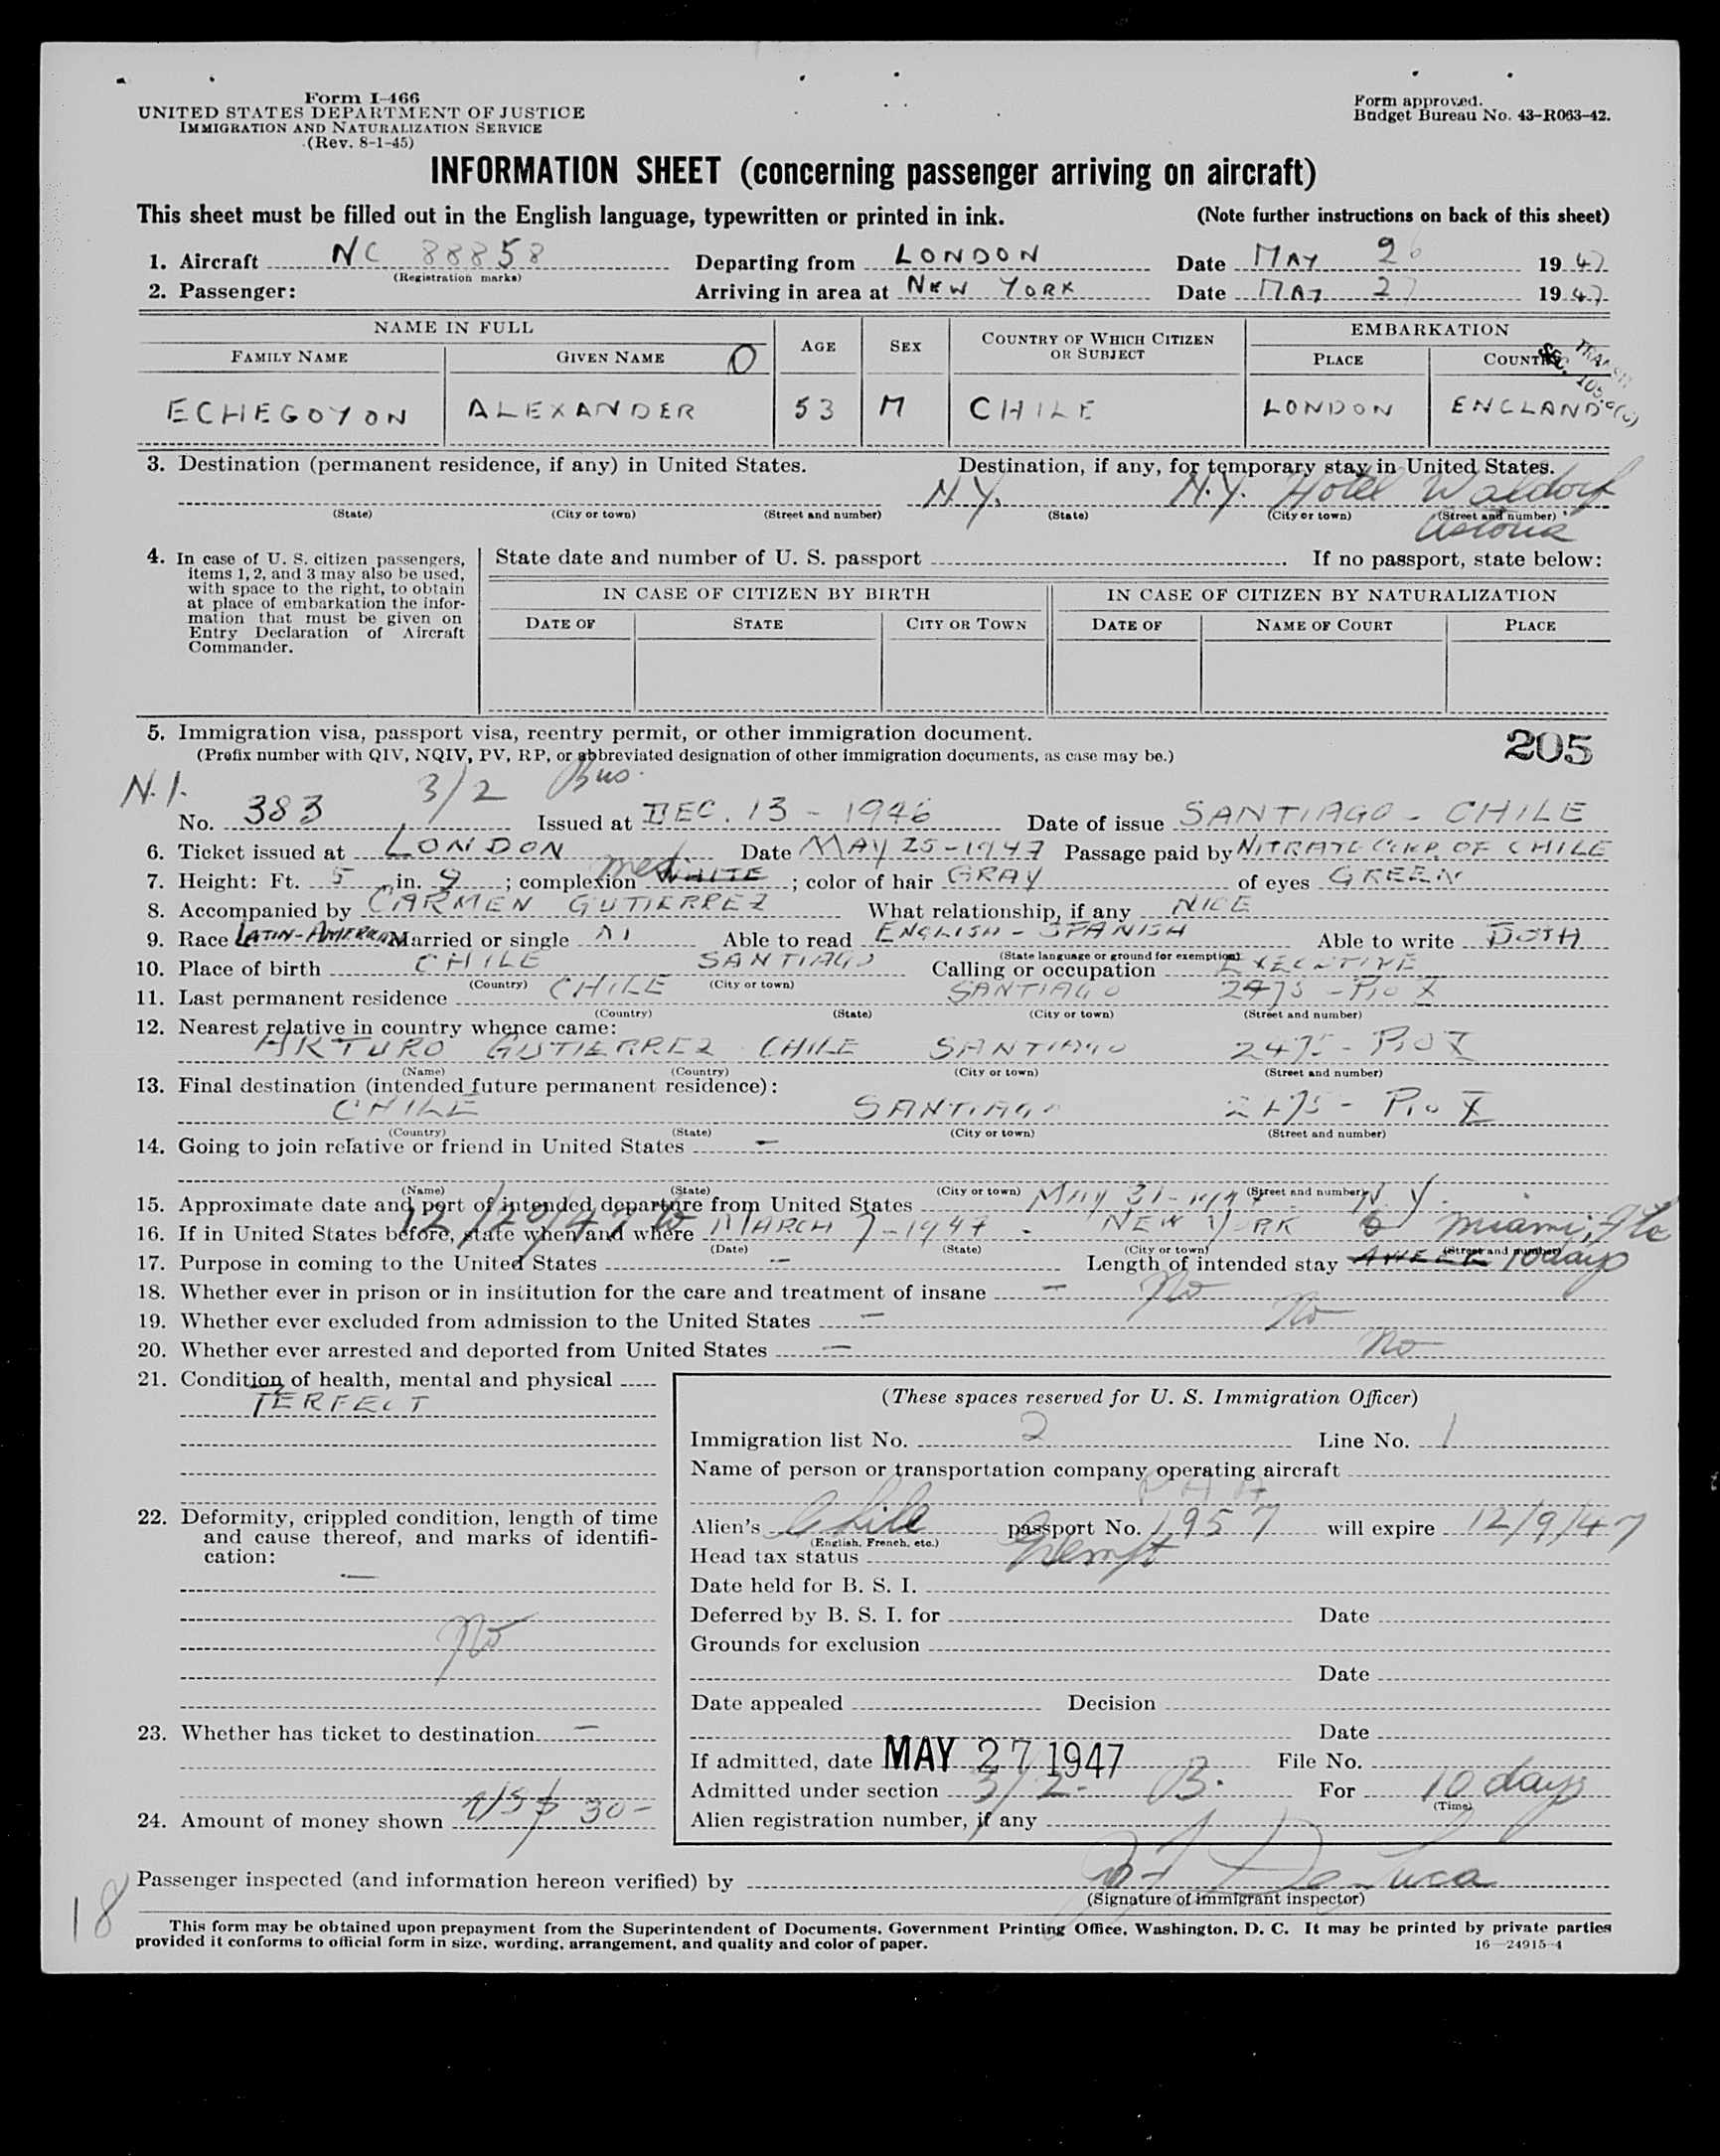 Form I-466
UNITED STATES DEPARTMENT OF JUSTICE
IMMIGRATION AND NATURALIZATION SERVICE
(Rev. 8-1-45)
Form approved.
Budget Bureau No. 43-R063-42.
INFORMATION SHEET (concerning passenger arriving on aircraft)
This sheet must be filled out in the English language, typewritten or printed in ink. (Note further instructions on back of this sheet)
1. Aircraft NC 88858 Departing from LONDON Date MAY 26 1947
(Registration marks)
2. Passenger: Arriving in area at NEW YORK Date MAY 27 1947
NAME IN FULL AGE SEX COUNTRY OF WHICH CITIZEN OR SUBJECT EMBARKATION
FAMILY NAME GIVEN NAME O PLACE COUNTRY
TRANSIT
SEC. 103.
ECHEGOYON ALEXANDER 53 M CHILE LONDON ENGLAND
3. Destination (permanent residence, if any) in United States. Destination, if any, for temporary stay in United States.
N.Y. N.Y. Hotel Waldorf
(State) (City or town) (Street and number) (State) (City or town) (Street and number)
Astoria
4. In case of U. S. citizen passengers, items 1, 2, and 3 may also be used, with space to the right, to obtain at place of embarkation the information that must be given on Entry Declaration of Aircraft Commander.
State date and number of U. S. passport If no passport, state below:
IN CASE OF CITIZEN BY BIRTH IN CASE OF CITIZEN BY NATURALIZATION
DATE OF STATE CITY OR TOWN DATE OF NAME OF COURT PLACE
5. Immigration visa, passport visa, reentry permit, or other immigration document.
205
(Prefix number with QIV, NQIV, PV, RP, or abbreviated designation of other immigration documents, as case may be.)
N.I. 3/2 Bus.
No. 383 Issued at DEC. 13 - 1946 Date of issue SANTIAGO - CHILE
6. Ticket issued at LONDON Date MAY 25-1947 Passage paid by NITRATE CORP. OF CHILE
7. Height: Ft. 5 in. 9 ; complexion WHITE med ; color of hair GRAY of eyes GREEN
8. Accompanied by CARMEN GUTIERREZ What relationship, if any NICE
9. Race LATIN-AMERICAN Married or single M Able to read ENGLISH - SPANISH Able to write BOTH
(State language or ground for exemption)
10. Place of birth CHILE SANTIAGO Calling or occupation EXECUTIVE
(Country) (City or town)
11. Last permanent residence CHILE SANTIAGO 2475 - PIO X
(Country) (State) (City or town) (Street and number)
12. Nearest relative in country whence came:
ARTURO GUTIERREZ CHILE SANTIAGO 2475 - PIO X
(Name) (Country) (City or town) (Street and number)
13. Final destination (intended future permanent residence):
CHILE SANTIAGO 2475 - PIO X
(Country) (State) (City or town) (Street and number)
14. Going to join relative or friend in United States -
(Name) (State) (City or town) (Street and number)
15. Approximate date and port of intended departure from United States MAY 31-1947 N.Y.
16. If in United States before, state when and where 12/20/47 to MARCH 7-1947 - NEW YORK Miami, Fla
(Date) (State) (City or town) (Street and number)
17. Purpose in coming to the United States - Length of intended stay A WEEK 10 days
18. Whether ever in prison or in institution for the care and treatment of insane - No
19. Whether ever excluded from admission to the United States - No
20. Whether ever arrested and deported from United States - No
21. Condition of health, mental and physical
PERFECT
22. Deformity, crippled condition, length of time and cause thereof, and marks of identification:
-
No
23. Whether has ticket to destination -
24. Amount of money shown US$ 30-
(These spaces reserved for U. S. Immigration Officer)
Immigration list No. 2 Line No. 1
Name of person or transportation company operating aircraft
PAA
Alien's Chile passport No. 1957 will expire 12/9/47
(English, French, etc.)
Head tax status Exempt
Date held for B. S. I.
Deferred by B. S. I. for Date
Grounds for exclusion
Date
Date appealed Decision
Date
If admitted, date MAY 27 1947 File No.
Admitted under section 3/2- B. For 10 days
(Time)
Alien registration number, if any
Passenger inspected (and information hereon verified) by De Luca
(Signature of immigrant inspector)
18
This form may be obtained upon prepayment from the Superintendent of Documents, Government Printing Office, Washington, D. C. It may be printed by private parties
provided it conforms to official form in size, wording, arrangement, and quality and color of paper. 16-24915-4